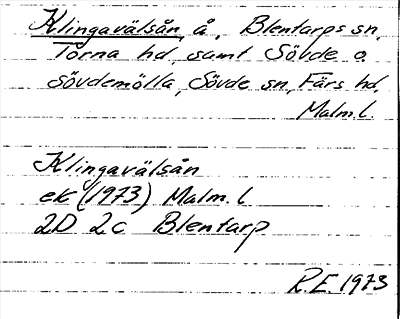 Klingavälsån, å, Blentarps sn,
Torna hd, samt Sövde o.
Sövdemölla, Sövde sn, Färs hd.
Malm.l.
Klingavälsån
ek (1973) Malm. l
2D 2c Blentarp
R.E. 1973